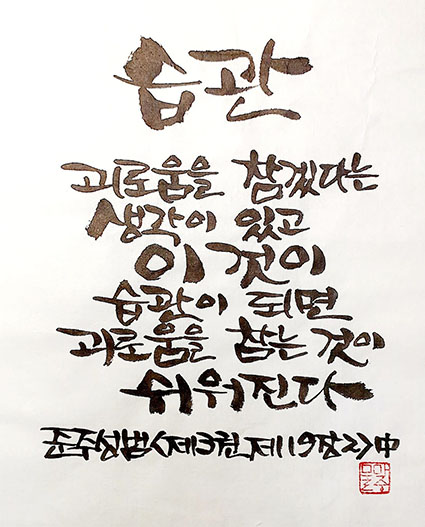 습관
괴로움을 참겠다는
생각이 있고
이것이
습관이 되면
괴로움을 참는 것이
쉬워진다
준주성범<제3권 제19장 2>中